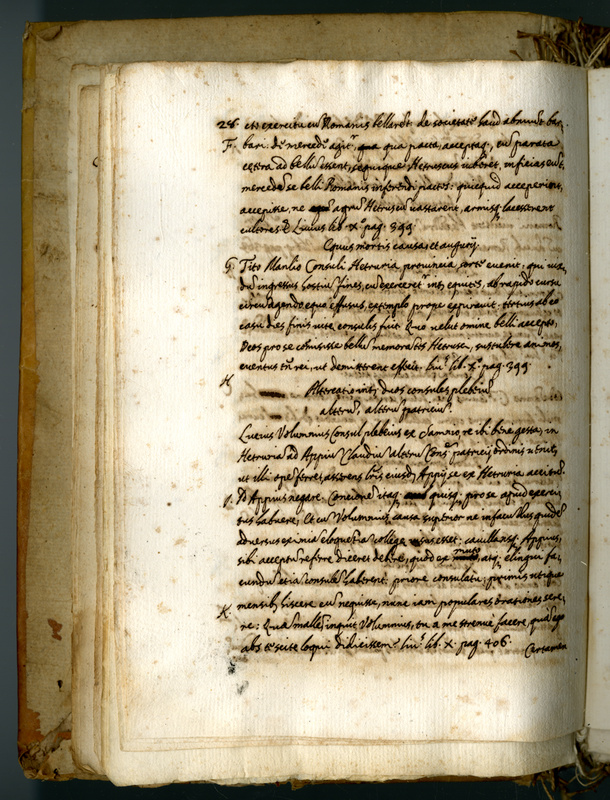 28. eto exercitu cu Romanis bellaret. de societate haud abnuut bar,
F. bari: de mercede agit.r qua qua pacta, acceptaq, cu parata
cetera ad bellu essent, sequique Hetruscus iuberet, inficias eut,
mercede se belli Romanis inferendi pactos: quicquid acceperint,
accepisse, ne agru Hetruscu vastarent, armisq. lacesserent
cultores. Livius lib. x.o pag. 399
Equus mortis causa, et augurij.
G. Tito Manlio Consuli Hetruria provincia sorte evenit, qui vix,
du ingressus hostiu fines, cu exerceret.r int, equites, ab rapido cursu
circu agendo equo effusus, extemplo prope expiravit. tertius ab eo
casu dies finis vite consulis fuit. Quo velut omine belli accepto,
Deos pro se comisisse bellu memorates Hetrusci, sustulere animos,
eventus tn rei, ut demitterent effecit. liu.s lib. x.o pag. 399.
H. Altercatio int, duos consules plebeiu
alteru, alteru patriciu.
Lucius Volumnius Consul plebeius ex Samnio, re ibi bene gesta, in
Hetruria ad Appiu Claudiu alteru Cons. patricij ordinis venit,
ut illi ope ferret, asserens lris eiusde Appij se ex Hetruria accitu.
I. Id Appius negare. Concione itaq. quisq. pro se apud exerci,
tus habuere, Et cu Volumnius causa superior ne infacundus quide
adversus eximia eloquetia college visus esset: cavillansq. Appius,
sibi acceptu referre diceret debere, quod ex muto, atq. elingui fa,
cundu etia consule haberent. priore consulatu, primis utique
K. mensib, hiscere eu nequisse, nunc iam populares orationes sere,
re: Qua malle inquit Volumnius, tu a me strenue facere, qua ego
abs te scite loqui didicissem. liu.s lib. X. pag. 406.
Certamen